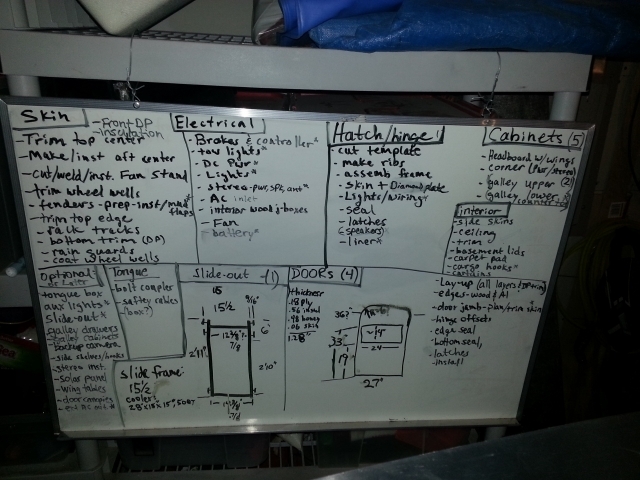 Skin
- Front DP
- insulation
- Trim top center
- Make/inst aft center
- cut/weld/inst. Fan Stand
- trim wheel wells
- fenders - prep - inst/mud flaps
- trim top edge
- rack tracks
- bottom trim (DP)
- rain guard
- coat wheel wells
Electrical
- Brakes & controller*
- tow lights*
- DC Pwr*
- Lights*
- stereo - pwr, spk, ant*
- AC inlet
- interior wood j-boxes
- Fan
- battery*
Hatch/hinge 1
- cut template
- make ribs
- assemb frame
- Skin + Diamond plate
- Lights/wiring*
- seal
- latches
(speakers)
- liner*
Cabinets (5)
- Headboard w/wings
- corner
- galley upper (2)
- galley lower
interior
- side skins
- ceiling
- trim
- basement lids
- carpet pad
- cargo hooks*
Optional
or Later
tongue box
aux lights*
slide-out*
galley drawers
backup camera
- side shelves
- stereo inst.
- solar panel
- wing tables
- door canopies
Tongue
- bolt coupler
- saftey cables
- (box?)
Slide-out - (1)
15½
9/16
6"
12 3/8"
7/8
2'11"
2'10"
slide frame:
15½
cooler:
28 x 15 x 15",
DOORS (4)
thickness
.18 ply
.56 insul
1.28"
36?
33"
19"
~14"
~24"
27"
- Lay-up (all layers)
- edges - wood & Al
- door jamb - ply/trim skin
- hinge offsets
- edge seal
- bottom seal,
- latches
- install